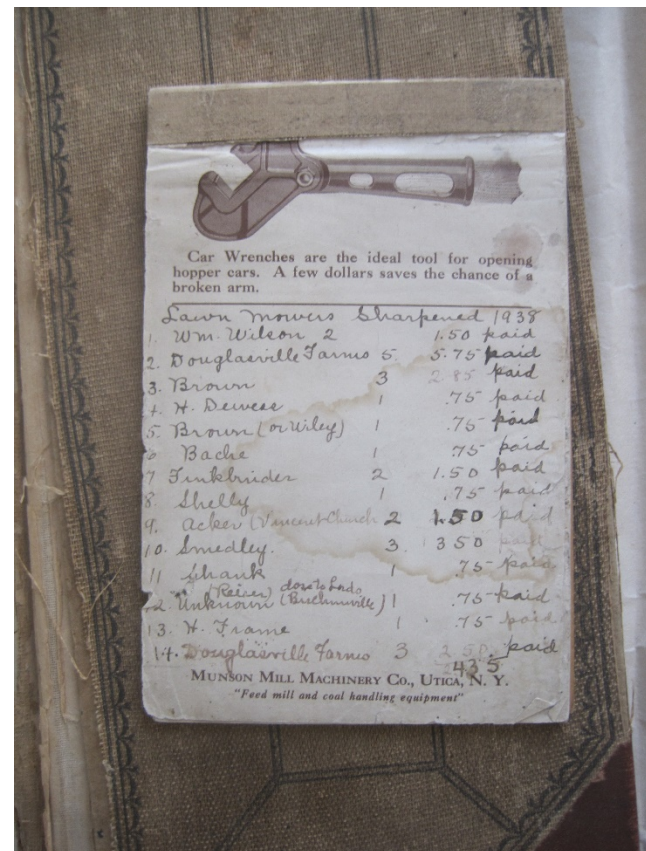 Car Wrenches are the ideal tool for opening
hopper cars. A few dollars saves the chance of a
broken arm.
Lawn Mowers Sharpened 1938
1. Wm. Wilson 2 1.50 paid
2. Douglasville Farms 5. 5.75 paid
3. Brown 3 2.85 paid
4. H. Dewees 1 .75 paid
5. Brown (or Wiley) 1 .75 paid
6 Bache 1 .75 paid
7 Finkbinder 2 1.50 paid
8. Shelly 1 .75 paid
9. Acker (Vincent Church 2 1.50 paid
10. Smedley. 3. 3 50 paid
11 Shank 1 .75 paid
(Reiver) close to
12. Unknown (Bucktownville) 1 .75 paid
13. H. Frame 1 .75 paid
14. Douglasville Farms 3 2 50. paid
2435
MUNSON MILL MACHINERY CO., UTICA, N. Y.
"Feed mill and coal handling equipment"